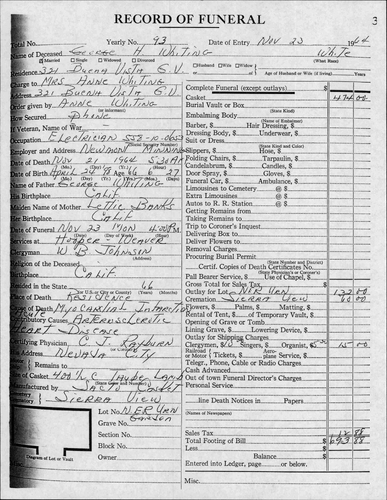 RECORD OF FUNERAL
3
Total No. Yearly No. 93 Date of Entry Nov 23 1964
Name of Deceased George H. Whiting White
(What Race)
Married Single Widowed Divorced Husband Wife Widow
Residence 321 Buena Vista G.V. Age of Husband or Wife (if living) Years
Charge to Mrs Anne Whiting
Address 321 Buena Vista G.V. Complete Funeral (except outlays) $
Order given by Anne Whiting Casket 474 00
How Secured Phone Burial Vault or Box
(State Kind)
If Veteran, Name of War Embalming Body
(Name of Embalmer)
Occupation Electrician Barber, $ Hair Dressing, $
Dressing Body, $ Underwear, $
Suit or Dress
Employer and Address Newmont Mining
Slippers, $ Hose, $
Date of Death Nov 21 1964 5:30 AM Folding Chairs, $ Tarpaulin, $
Candelabrum, $ Candles, $
Door Spray, $ Gloves, $
Name of Father George Whiting Funeral Car, $ Ambulance, $
His Birthplace Calif Limousines to Cemetery @ $
Extra Limousines @ $
Maiden Name of Mother Banks Autos to R. R. Station @ $
Her Birthplace Calif Getting Remains from
Taking Remains to
Date of Funeral Nov 23 Mon Trip to Coroner's Inquest
Services at Hooper-Weaver Delivering Box to
Clergyman W B Johnson Deliver Flowers to
Removal Charges
Procuring Burial Permit
(State Number and District)
Birthplace Calif Certif. Copies of Death Certificates No.
(State Physician's or Coroner's)
Pall Bearer Service, $ Use of Chapel, $
Resided in the State 66 Gross Total for Sales Tax $
Place of Death Residence Outlay for Lot
Cemetery Sierra View 60 00
Myocardial Infarction Flowers, $ Palms, $ Matting, $
Rental of Tent, $ of Temporary Vault, $
Contributory Causes Arteriosclerotic Opening of Grave or Tomb
Heart Disease Lining Grave, $ Lowering Device, $
Outlay for Shipping Charges
Certifying Physician C J Rayburn Clergymen, $10 Singers, $ Organist, $5 15 00
His Address Nevada City Railroad or Motor Tickets, $ Aeroplane Service, $
Telegr., Phone, Cable or Radio Charges
Remains to Cash Out of town Funeral Director's Charges
Personal Service
Manufactured by Sacto Casket
Cemetery Sierra View line Death Notices in Papers
(Names of Newspapers)
Lot No.
Grave No.
Section No. Sales Tax $ 12 88
Block No. Total Footing of Bill $ 693 88
Owner Less $
Balance $
Diagram of Lot or Vault Entered into Ledger, page or below.
Misc.